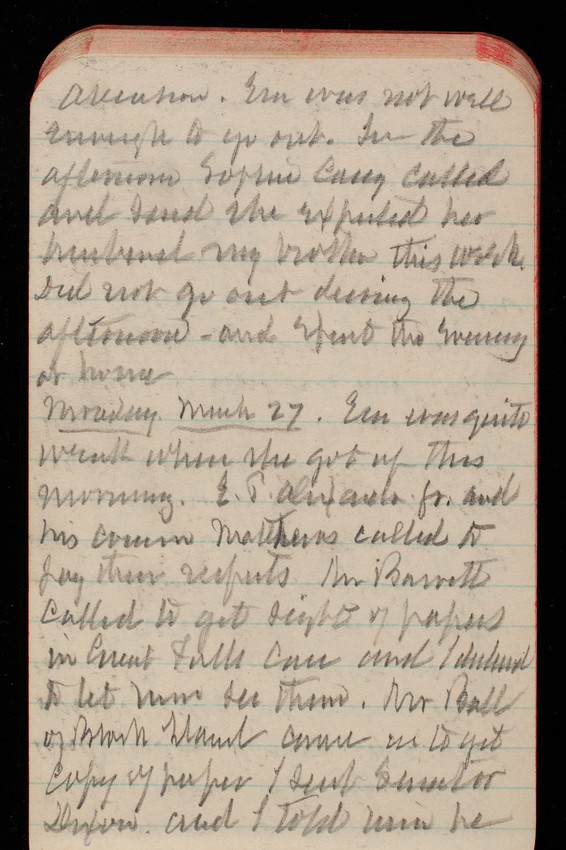 Em was not well
enough to go out. In the
afternoon Sophie Casey called
and said she expected her
husband my brother this week.
Did not go out during the
afternoon - and spent the evening
at home
Monday March 27. Em was quite
weak when she got up this
morning. E. P. Alexander Jr. and
his cousin Matthews called to
pay their respects Mr Barrett
called to get sight of papers
in Great Falls Case and I declined
to let him see them. Mr Ball
of Block Island came in to get
copy of paper I sent Senator
Dixon. and I told him he